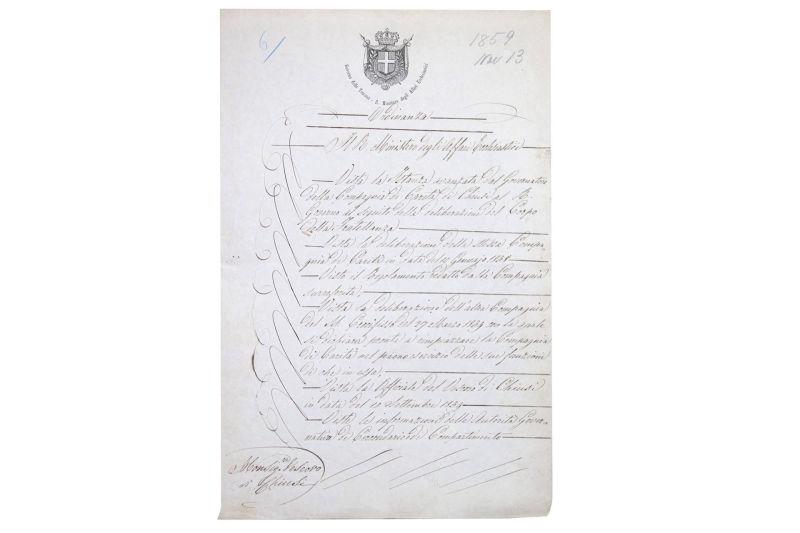 6/
1859
Nov 13
Governo della Toscana - Il Ministero degli Affari Ecclesiastici
Ordinanza
Il R. Ministero degli Affari Ecclesiastici
Vista la Istanza avanzata dal Governatore
della Compagnia di Carità di Chiusi al R.
Governo in seguito della deliberazione del Corpo
della Fratellanza
Vista la deliberazione della stessa Compa-
gnia di Carità in data del Gennajo
Visto il Regolamento redatto dalla Compagnia
surriferita;
Vista la deliberazione dell'altra Compagnia
del SS. Crocifisso del 27 Marzo 1859 con la quale
si dichiara pronta a rimpiazzare la Compagnia
di Carità nel pieno esercizio delle sue funzioni
di che in essa;
Vista la Officiale del Vescovo di Chiusi
in data del 20 Settembre 1859
Viste le informazioni delle Autorità Gover-
native di Circondario e di Compartimento
Monsig.re Vescovo
di Chiusi